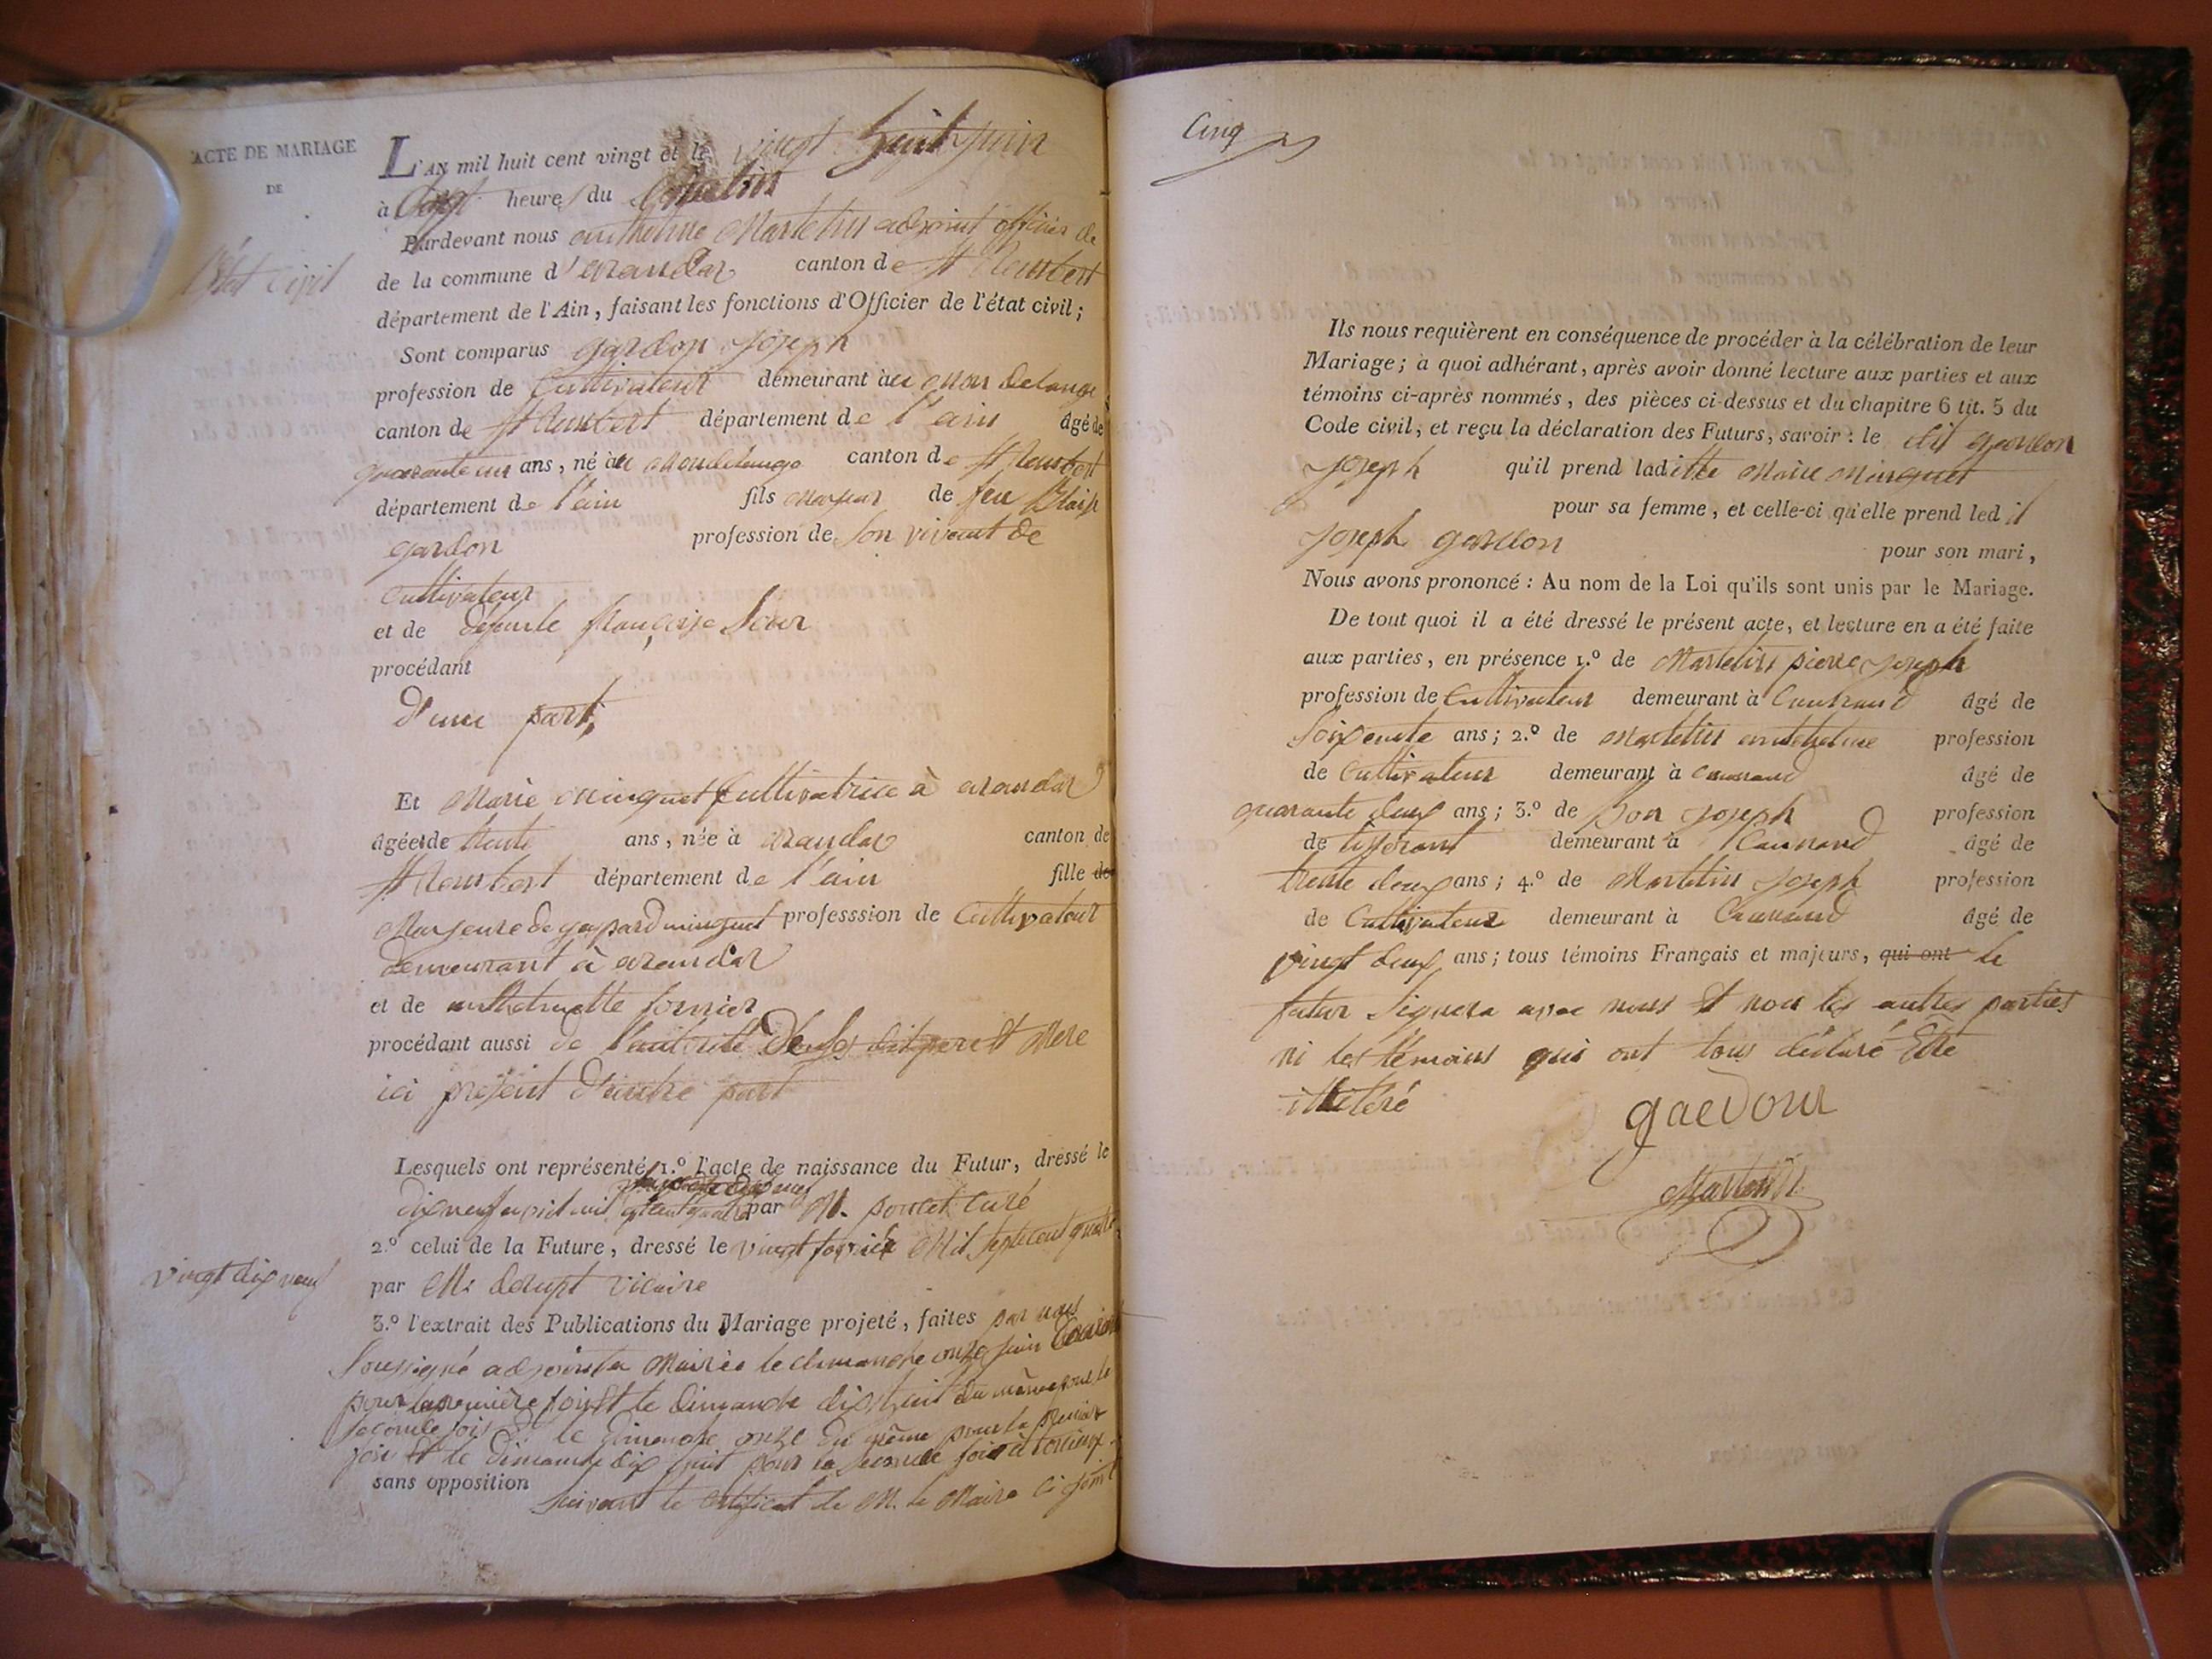 ACTE DE MARIAGE
DE
L'AN mil huit cent vingt et le vingt huit juin
à heures du matin
Pardevant nous anthelme Martelin adjoint officier de
l'état civil
de la commune d'arandas canton de St Rembert
département de l'Ain, faisant les fonctions d'Officier de l'état civil;
Sont comparus gardon joseph
profession de Cultivateur demeurant au
canton de St Rembert département de l'ain âgé de
quarante un ans, né au canton de St Rembert
département de l'ain fils majeur de feu Blaise
gardon profession de Son vivant de
cultivateur
et de défunte françoise
procédant
D'une part,
Et Marie minguet Cultivatrice à arandas
âgée de trente ans, née à arandas canton de
St Rembert département de l'ain fille de
Majeure de gaspard minguet professsion de Cultivateur
demeurant à arandas
et de
procédant aussi de l'autorité de ses dit pere et Mere
ici présent D'autre part
Lesquels ont représenté 1.º l'acte de naissance du Futur, dressé le
dix neuf par M. poncet curé
2.º celui de la Future, dressé le vingt fevrier Mil sept cent quatre
vingt dix neuf
par Mr vicaire
3.º l'extrait des Publications du Mariage projeté, faites par nous
Soussigné adjoint Mairie le dimanche onze juin
pour la premiere fois et le dimanche dix huit du même pour la
seconde fois et le dimanche onze du même pour la premiere
fois et le Dimanche dix huit pour la seconde fois à torcieux
sans opposition
suivant le Certificat de M. le Maire ci joint
Cinq
Ils nous requièrent en conséquence de procéder à la célébration de leur
Mariage; à quoi adhérant, après avoir donné lecture aux parties et aux
témoins ci-après nommés, des pièces ci-dessus et du chapitre 6 tit. 5 du
Code civil, et reçu la déclaration des Futurs, savoir: le dit gardon
joseph qu'il prend laditte Marie Minguet
pour sa femme, et celle-ci qu'elle prend ledit
joseph gardon pour son mari,
Nous avons prononcé: Au nom de la Loi qu'ils sont unis par le Mariage.
De tout quoi il a été dressé le présent acte, et lecture en a été faite
aux parties, en présence 1.º de Martelin pierre joseph
profession de Cultivateur demeurant à âgé de
Soixante ans; 2.º de Martelin anthelme profession
de Cultivateur demeurant à âgé de
quarante deux ans; 3.º de Bon joseph profession
de tisserant demeurant à âgé de
trente deux ans; 4.º de Martelin joseph profession
de Cultivateur demeurant à âgé de
vingt deux ans; tous témoins Français et majeurs, qui ont le
futur signera avec nous et non les autres parties
ni les témoins qui ont tous déclaré Etre
illitéré
gardon
Martelin